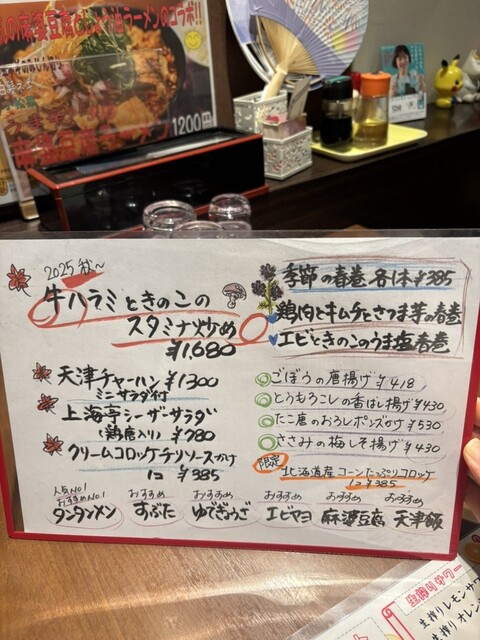 の麻婆豆腐としょうゆラーメンのコラボ!!
1200円
2025 秋〜
牛ハラミときのこの
スタミナ炒め
¥1,680
天津チャーハン ¥1300
ミニサラダ付
上海亭シーザーサラダ
(鶏唐入り) ¥780
クリームコロッケチリソースかけ
1コ ¥385
季節の春巻 各1本 ¥385
鶏肉とキムチとさつま芋の春巻
エビときのこのうま塩春巻
ごぼうの唐揚げ ¥418
とうもろこしの香ばし揚げ ¥430
たこ唐のおろしポンズがけ ¥530
ささみの梅しそ揚げ ¥430
限定
北海道産 コーンたっぷりコロッケ
1コ ¥385
人気NO!
おすすめNO.1
タンタンメン
おすすめ
すぶた
おすすめ
ゆでぎょうざ
おすすめ
エビマヨ
おすすめ
麻婆豆腐
おすすめ
天津飯
生搾りサワー
生搾りレモンサワ
生搾りオレン